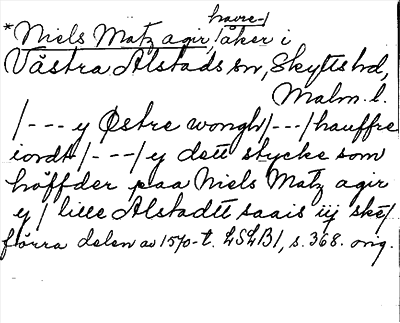 *Niels Matz agir, /havre-/ åker i
Västra Alstads sn, Skytts hd,
Malm. l.
/--- y Østre wongh/---/hauffre
iordt/---/y dett stycke som
höffder paa Niels Matz agir
y/ lille Alstadtt saais iij ske/
förra delen av 1570-t. LSLB1, s. 368. orig.